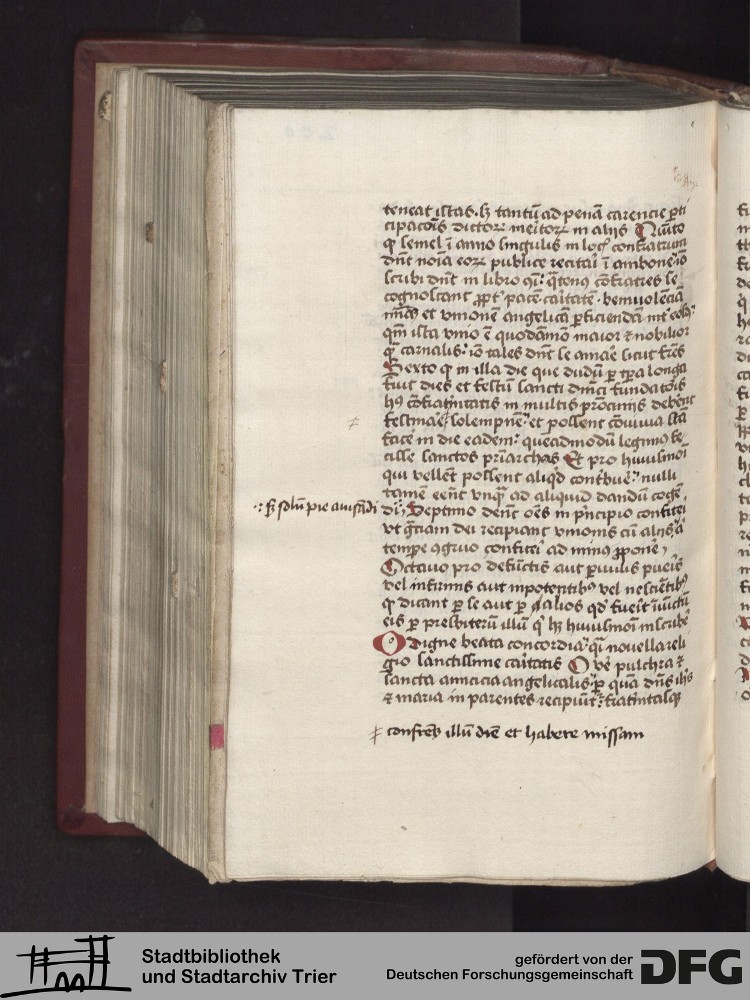 teneat istas. sz tantū ad penā carencie pti
cipacōis dictoꝝ meritoꝝ in alijs Quīto
ꝙ semel ī anno singulis in locꝭ confratrum
dn̄t noīa eoꝝ publice recitaī ī ambone
scribi dn̄t in libro qꝫ qͣtenꝰ cōfratres se
cognoscant ꝓpt' pacē caītatē beniuolēciā
et vnionē angelicā ꝑficiendā int' eos
qm̄ ista vnio ē quodāmō maior ⁊ nobilior
qͣ carnalis: iō tales dn̄t se amare sicut frēs
Sexto ꝙ in illa die que dudū ꝑ tꝑa longa
fuit dies et festū sancti dn̄ici fundatoīs
hꝰ cōfrat'nitatis in multis ꝓuincijs debent
festinaē solempne et possent cōuiuia
facē in die eadem: queadmodū legimꝰ fe
cisse sanctos pr̄iarchas Et pro huiusmōi
qui vellēt possent aliqd contbuē: nulli
tamē eēnt vnqͣ ad aliquid dandū cogē
·: sz solū pie amōndi di: Septimo den̄t oēs in pͥncipio confitei
vt gr̄ciam dei recipiant vnionis cū alijs
tempe ꝯgruo confitei ad minus ꝓponē
Octauo pro defunctis aut paruulis pueis
vel infirmis aut inpotentibꝰ vel nesciētibꝰ
ꝙ dicant ꝑ se aut ꝑ alios qd fueīt iniūctū
eis ꝑ presbiterū illū qͥ hz huiusmōi inscribē
O digne beata concordia qͥ nouella reli
gio sanctissime caritatis O ve pulchra ⁊
sancta amicicia angelicalis ꝑ quā dn̄s ih̄s
⁊ maria in parentes recipiūt fratintatisqꝫ
confreb illū diē et habere missam
Stadtbibliothek
und Stadtarchiv Trier
gefördert von der
Deutschen Forschungsgemeinschaft
DFG